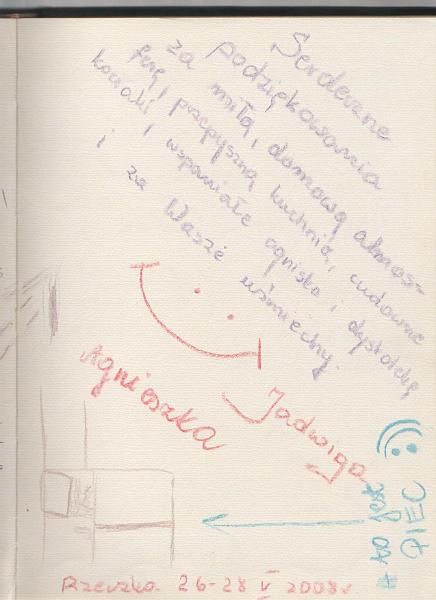 Serdeczne
podziękowania
za miłą, domową atmos-
ferę, przepyszną kuchnię, cudowne
koniaki, wspaniałe ognisko i dyskotekę
i za Wasze uśmiechy.
Agnieszka
Jadwiga
A TO JEST
PIEC
Rzeczka 26-28 V 2008r.